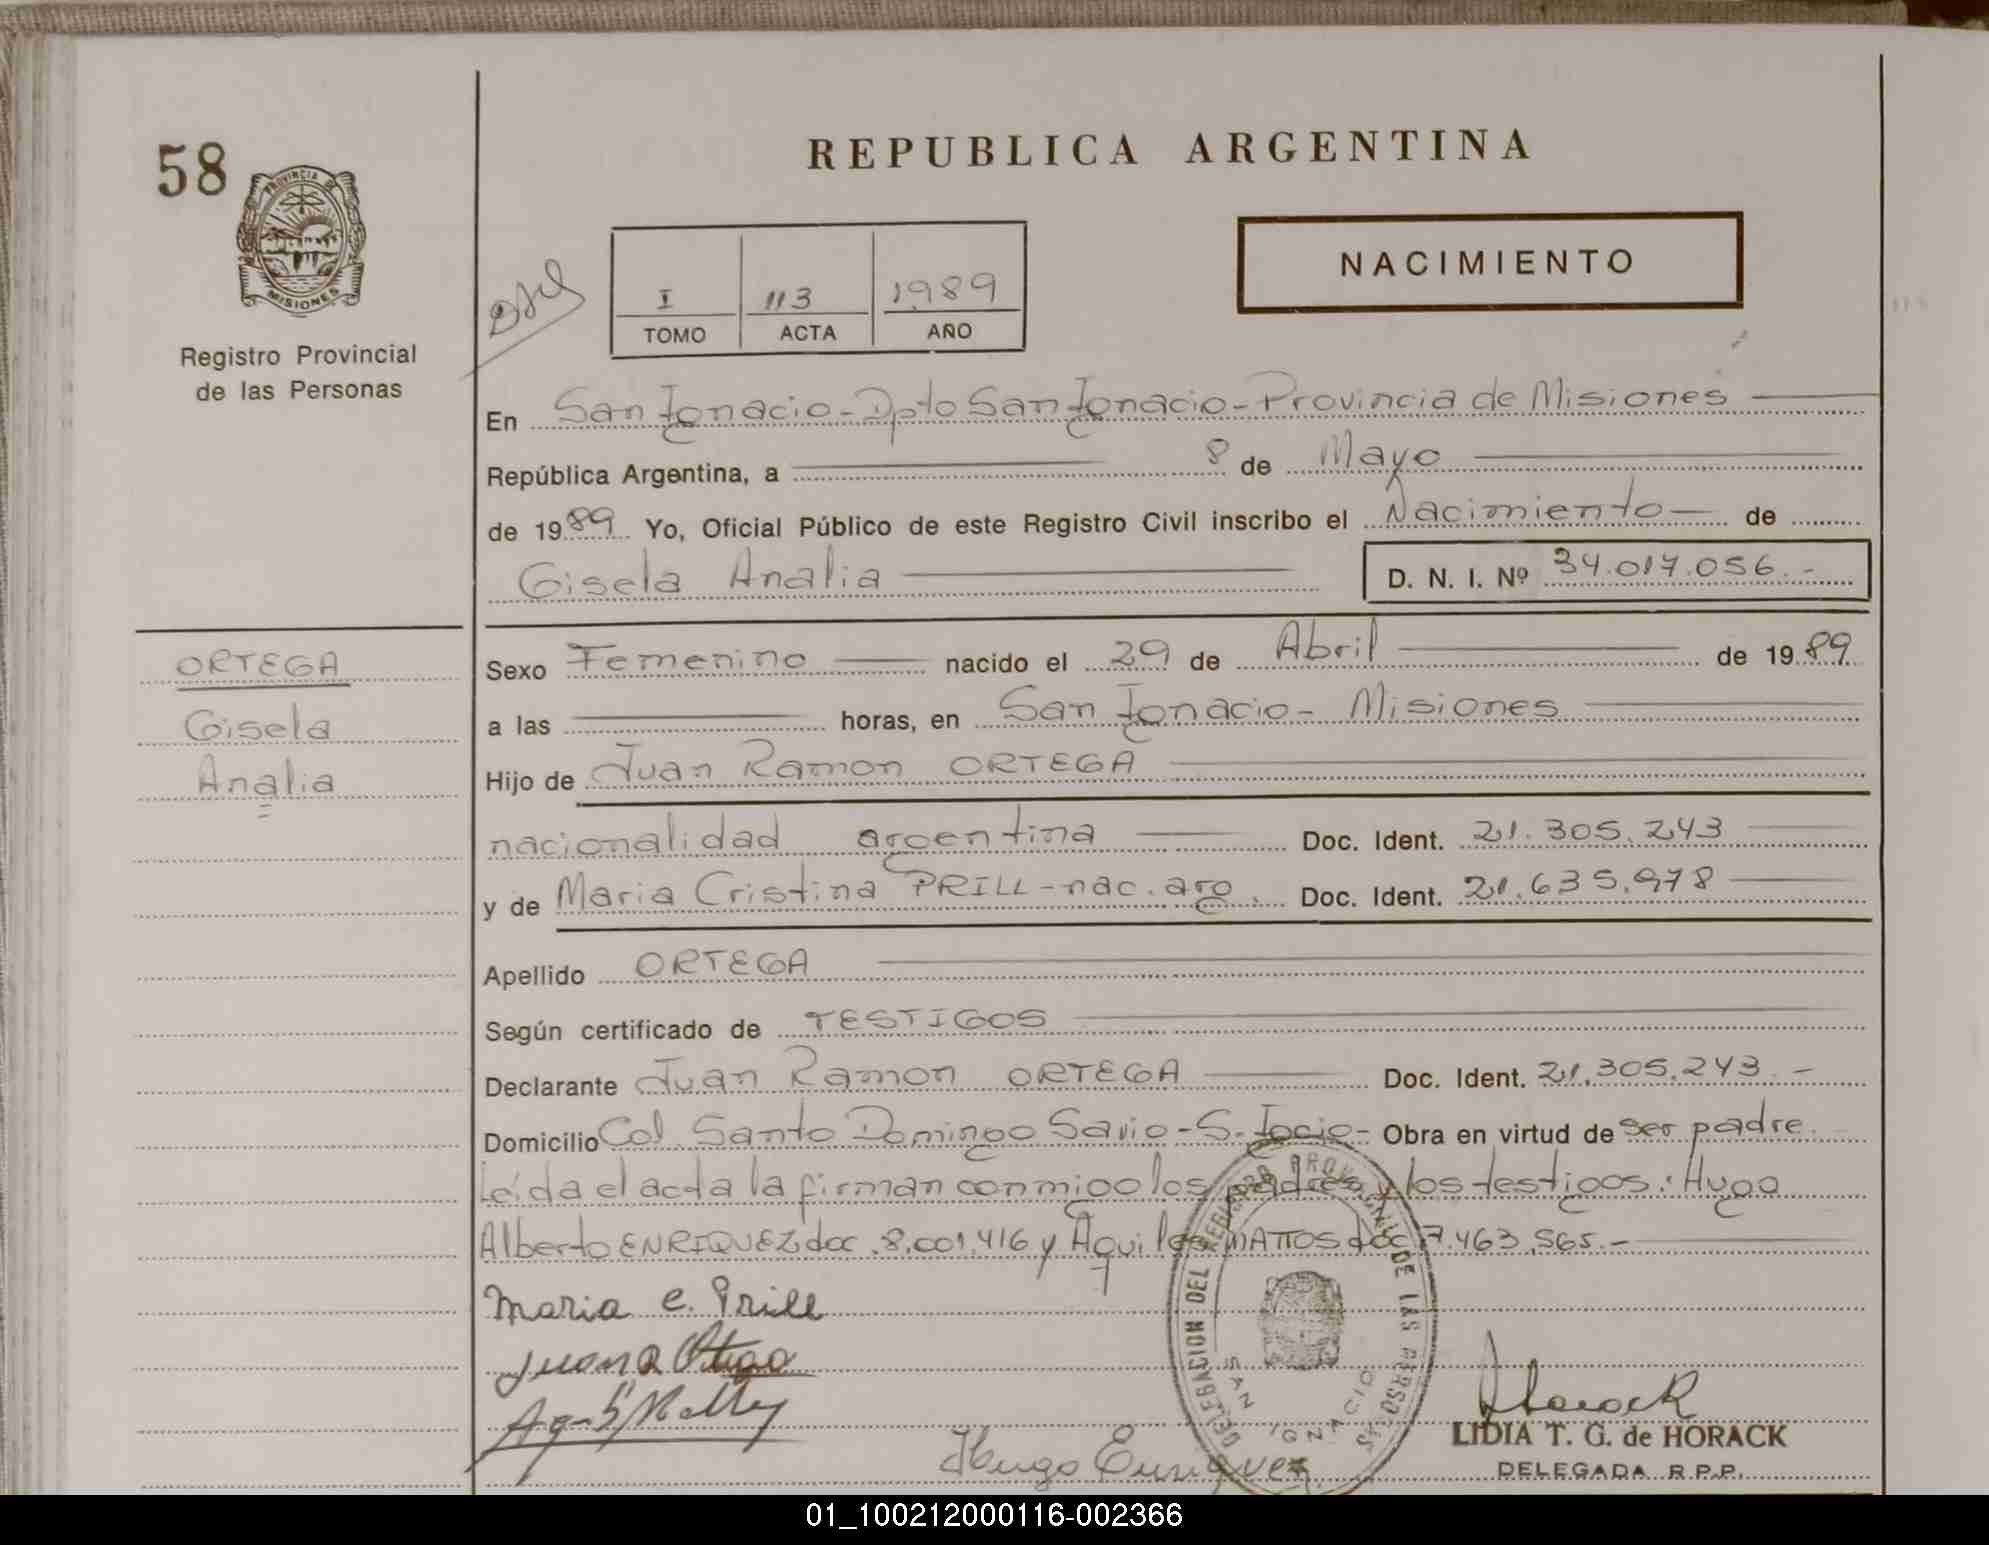 58
PROVINCIA DE
MISIONES
Registro Provincial
de las Personas
REPUBLICA ARGENTINA
NACIMIENTO
I 113 1989
TOMO ACTA AÑO
En San Ignacio - Dpto San Ignacio - Provincia de Misiones
República Argentina, a 8 de Mayo
de 1989 Yo, Oficial Público de este Registro Civil inscribo el Nacimiento de
Gisela Analia D. N. I. Nº 34.017.056.-
ORTEGA
Gisela
Analia
Sexo Femenino nacido el 29 de Abril de 1989
a las horas, en San Ignacio - Misiones
Hijo de Juan Ramon ORTEGA
nacionalidad argentina Doc. Ident. 21.305.243
y de Maria Cristina PRILL - nac. arg. Doc. Ident. 21.635.978
Apellido ORTEGA
Según certificado de TESTIGOS
Declarante Juan Ramon ORTEGA Doc. Ident. 21.305.243.-
Domicilio Col. Santo Domingo Savio - S. Igcio - Obra en virtud de ser padre.
Leída el acta la firman conmigo los padres y los testigos: Hugo
Alberto ENRIQUEZ doc. 8.001.416 y Aquiles MATTOS doc 7.463.565.-
Maria C. Prill
Juan R Ortega
Hugo Enriquez
DELEGACION DEL REGISTRO PROVINCIAL DE LAS PERSONAS
SAN IGNACIO
LIDIA T. G. de HORACK
DELEGADA R.P.P.
01_100212000116-002366